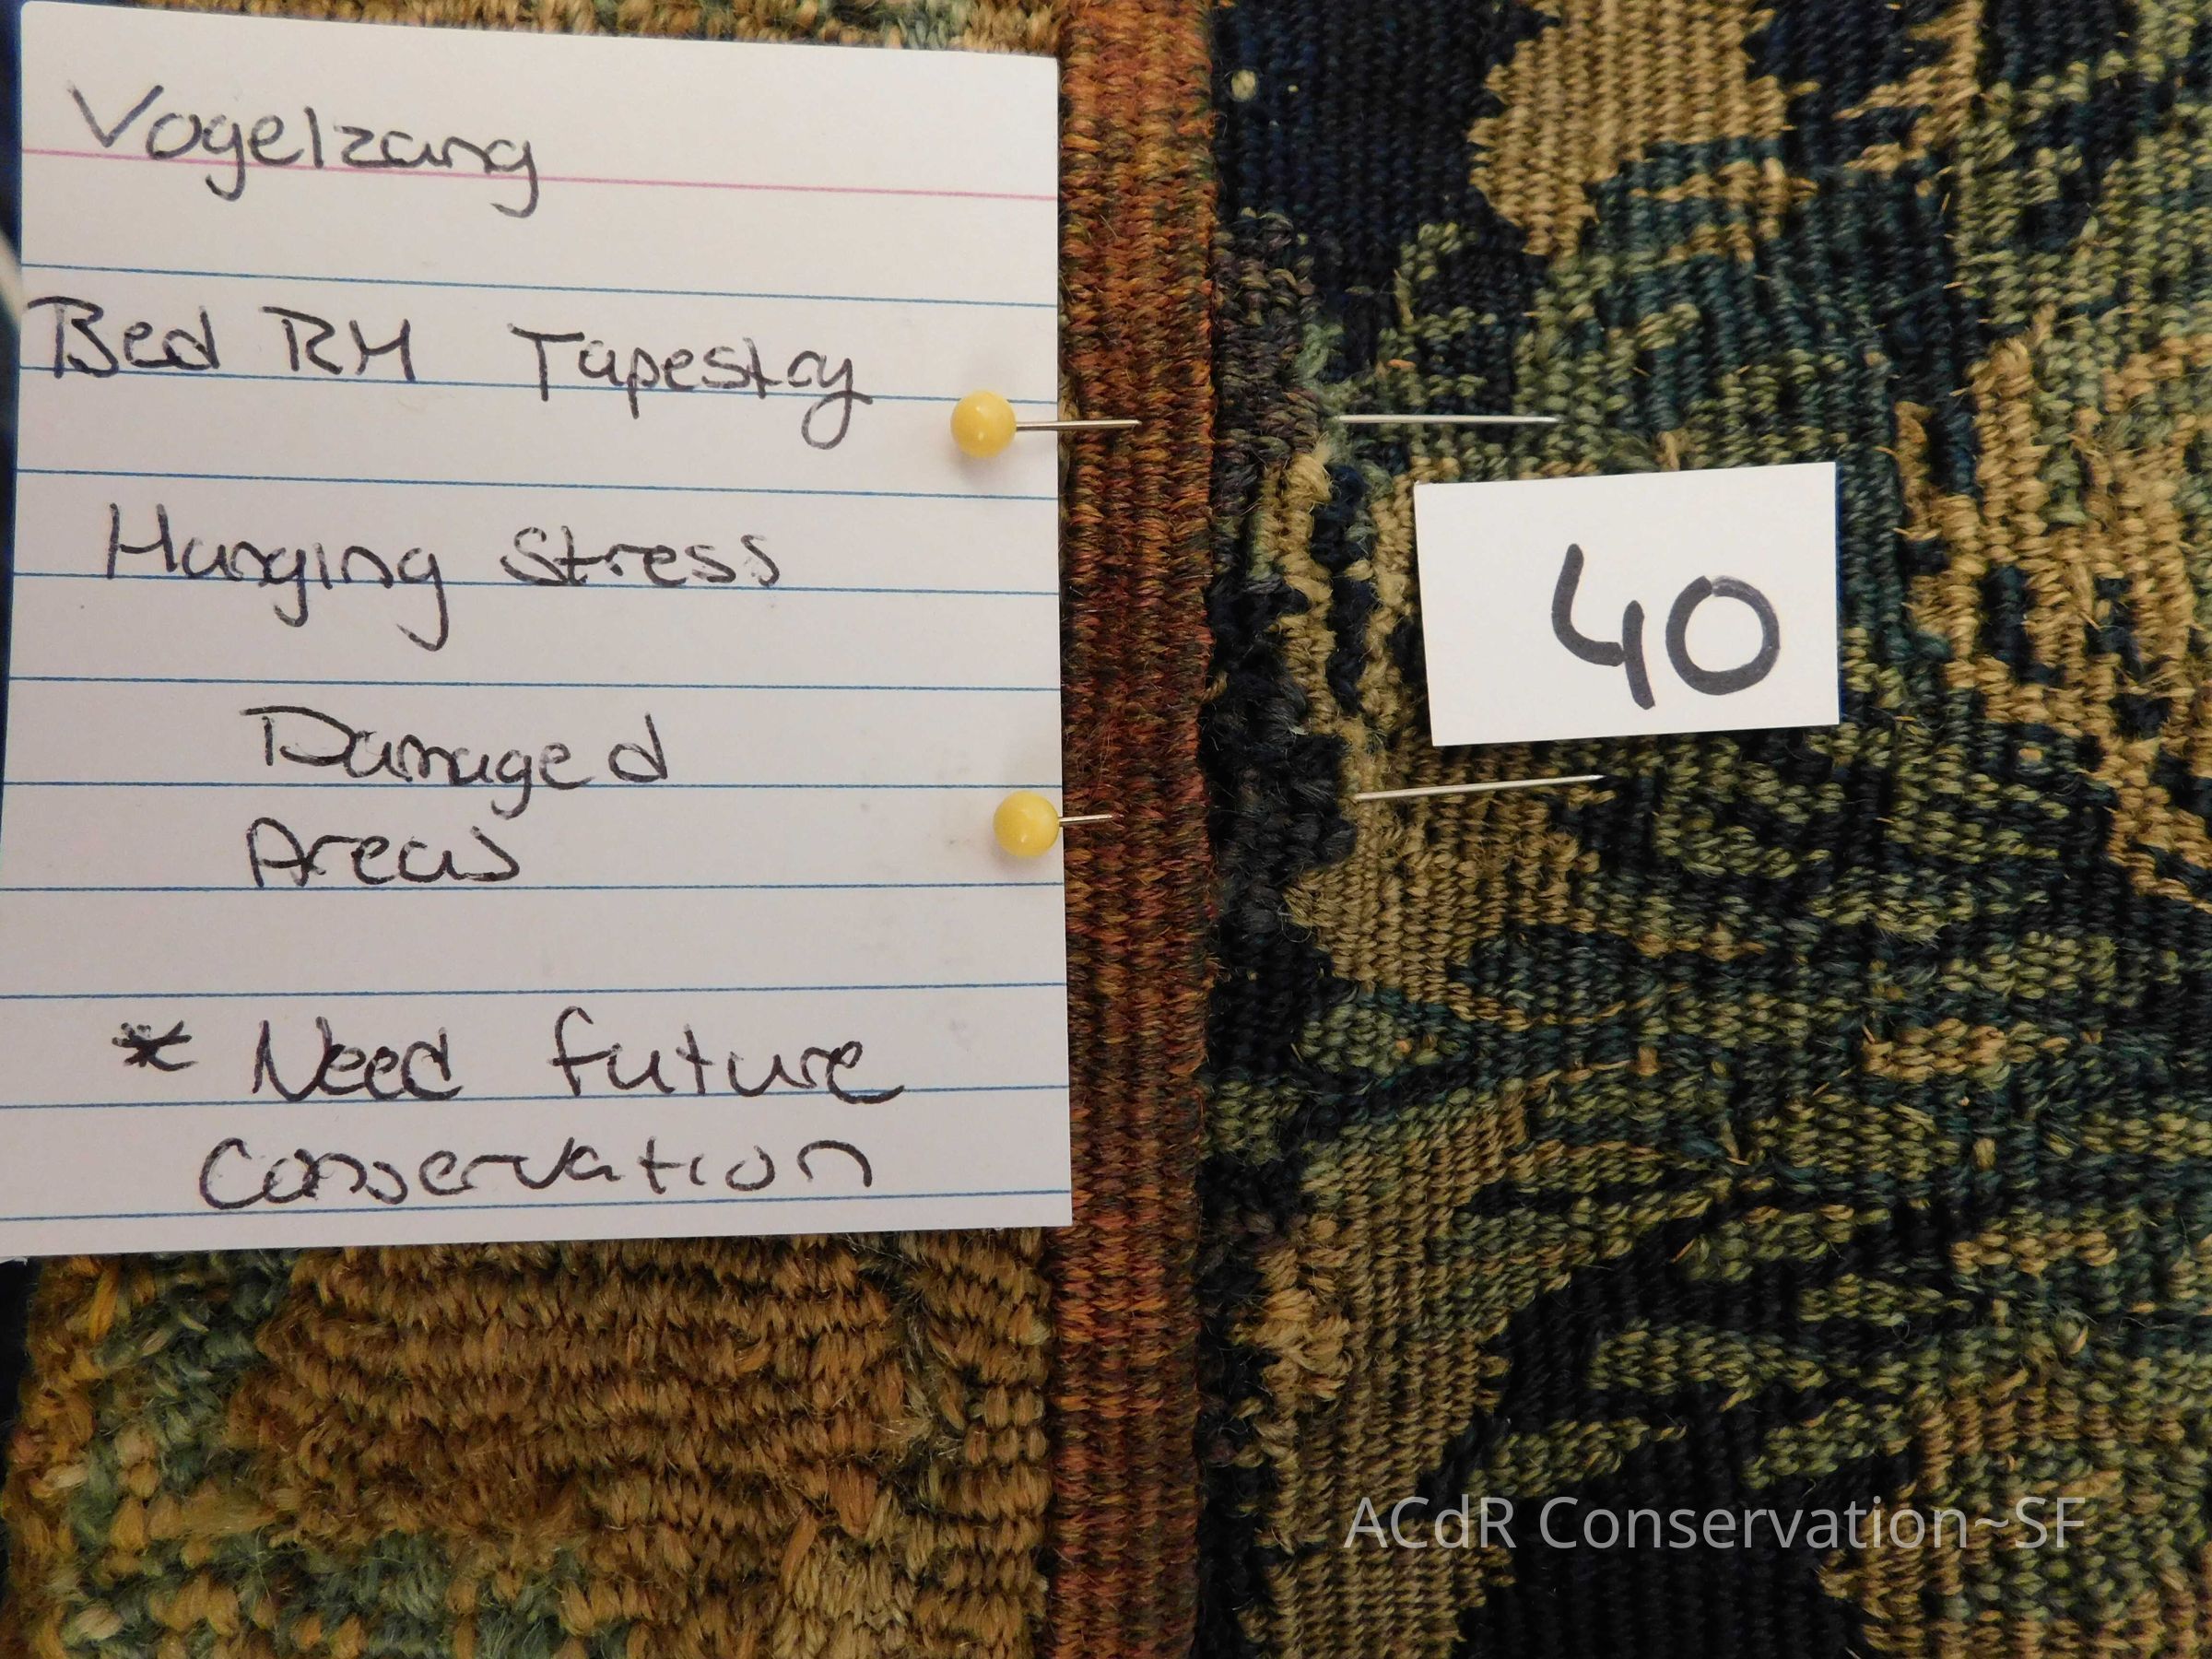 Vogelzang
Bed RM Tapestry
Hanging Stress
Damaged
Areas
* Need future
Conservation
40
ACdR Conservation~SF